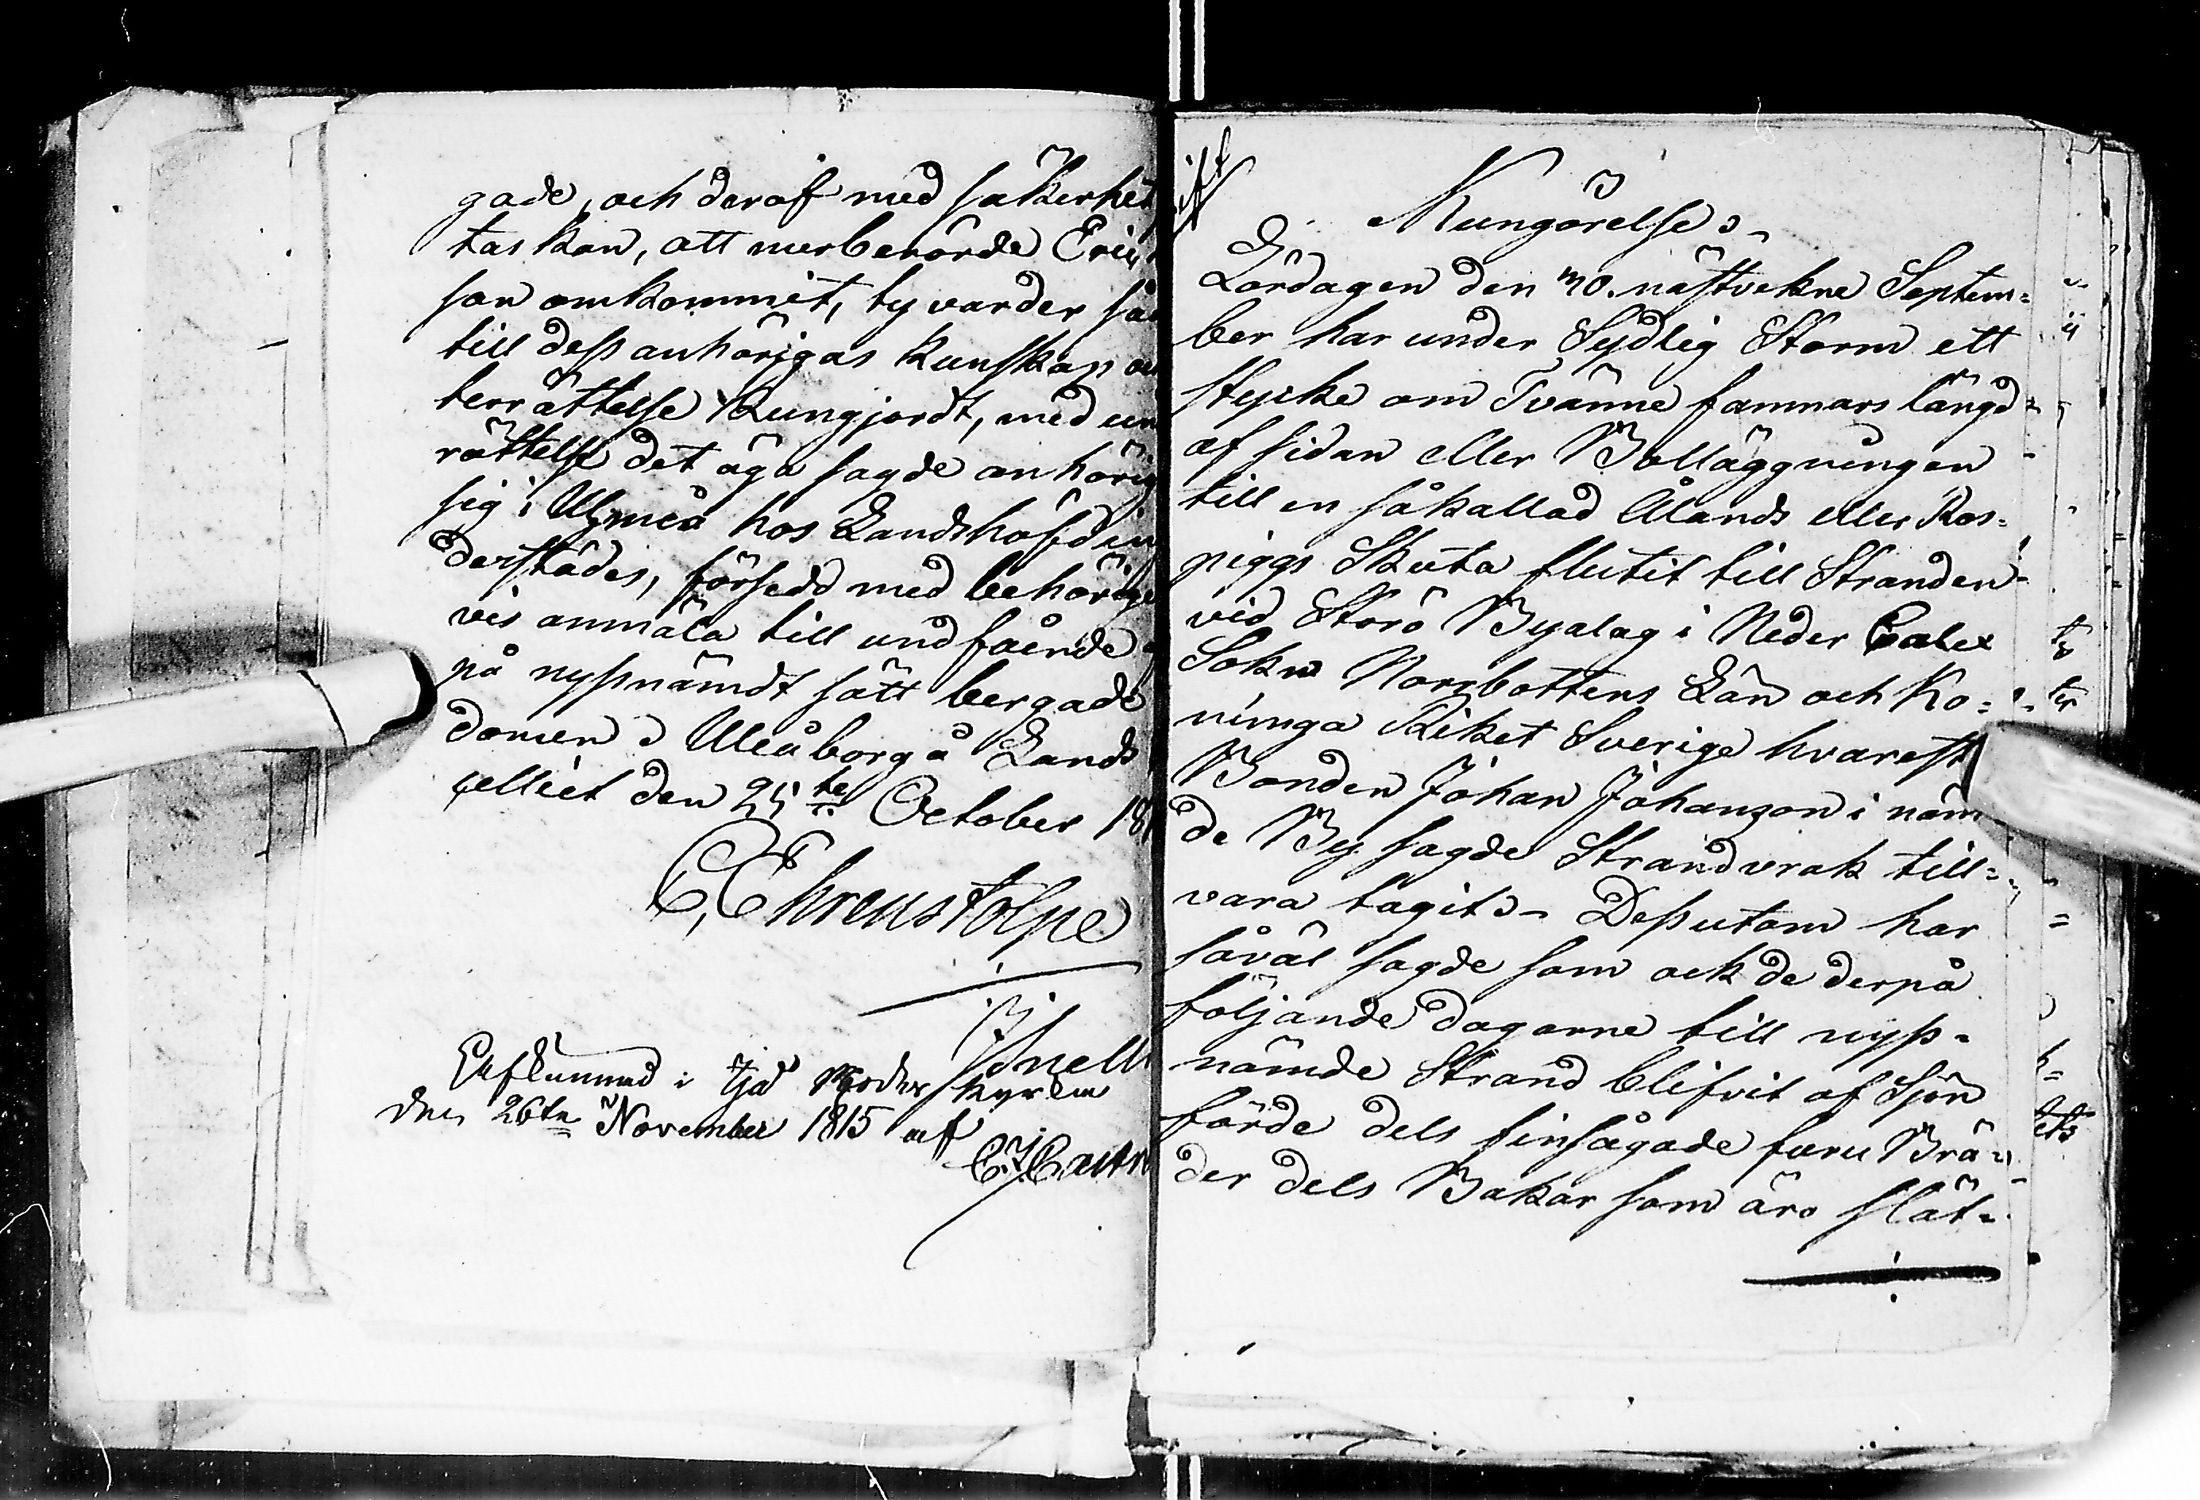 gade, och deraf med säkerhet
tas kan, att merberörde Eric
son omkommit, ty varder så
till dess anhörigas kunskap oc
terrättelse kungjordt, med un
rättelse det äga sagde anhörig
sig i Umeå hos Landshöfdin
derstädes, försedd med behörige
vis anmäla till undfående
på nyssnämdt sätt bergade
domen. Uleåborg å Lands
celliet den 25te October 181
C, Ehrenstolpe
Snell
Upkunnad i Moder kyrkan
den 26te November 1815 af
C.J. Castr
Kungörelse.
Lördagen den 30. nästvekne Septem=
ber har under Sydlig Storm ett
stycke om Tvänne famnars längd
af sidan eller Bolläggningen
till en såkallad Ålands eller Ros=
piggs Skuta flutit till Stranden
vid Storö Byalag i Neder Calix
Sokn Norrbottens Län och Ko=
nunga Riket Sverige hvarest
Bonden Johan Johanzon i näm
de By sagde Strandvrak till=
vara tagit. Dessutom har
såväl sagde som ock de derpå
följande dagarne till nyss=
nämde Strand blifvit af Sjön
förde dels finsågade furu Brä=
der dels Bakar som äro slät=